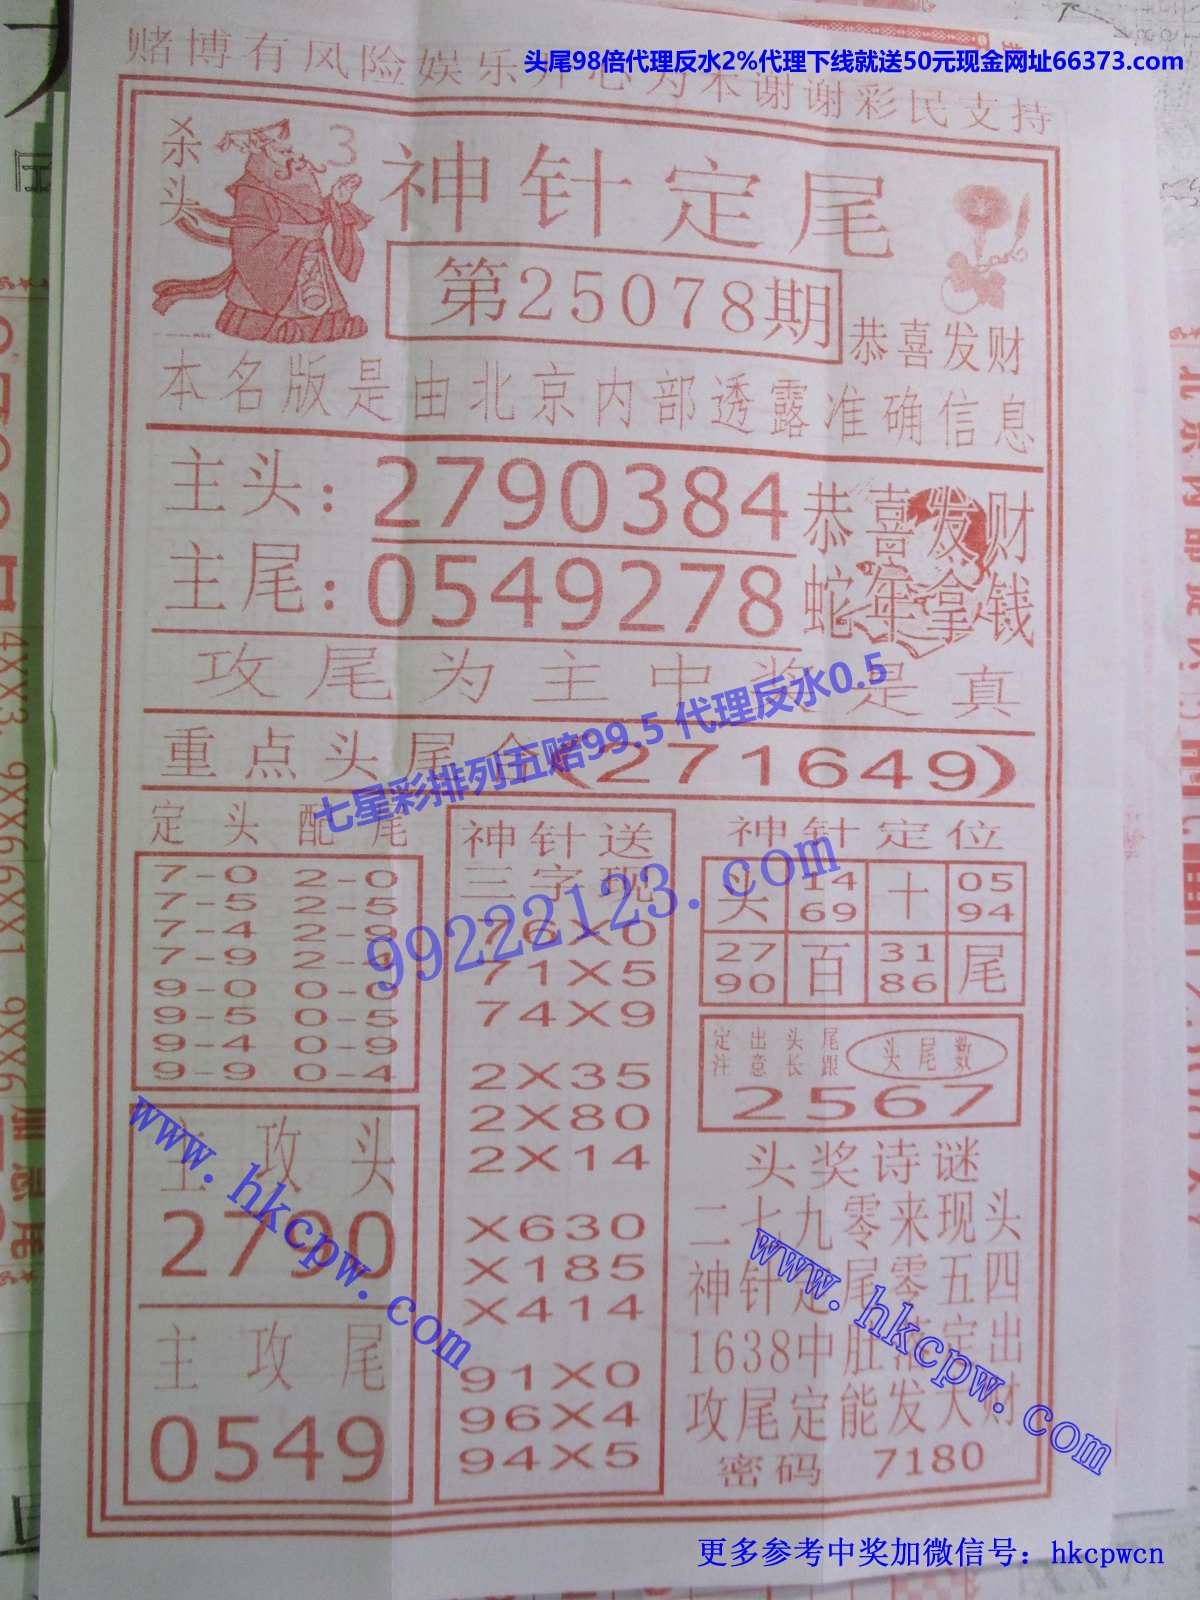 头尾98倍代理反水2%代理下线就送50元现金网址66373.com
赌博有风险娱乐开心为本谢谢彩民支持
杀头
3
神针定尾
第25078期
恭喜发财
本名版是由北京内部透露准确信息
主头：2790384
主尾：0549278
恭喜发财
蛇年拿钱
攻尾为主中奖是真
重点头尾合(271649)
七星彩排列五赔99.5 代理反水0.5
99222123.com
定头配尾
7-0 2-0
7-5 2-5
7-4 2-9
7-9 2-4
9-0 0-0
9-5 0-5
9-4 0-9
9-9 0-4
主攻头
2790
主攻尾
0549
神针送
三字现
76X0
71X5
74X9
2X35
2X80
2X14
X630
X185
X414
91X0
96X4
94X5
神针定位
头 14 69 十 05 94
27 90 百 31 86 尾
定出头尾
注意长跟
头尾数
2567
头奖诗谜
二七九零来现头
神针定尾零五四
1638中肚落定出
攻尾定能发大财
密码 7180
www.hkcpw.com
www.hkcpw.com
更多参考中奖加微信号：hkcpwcn